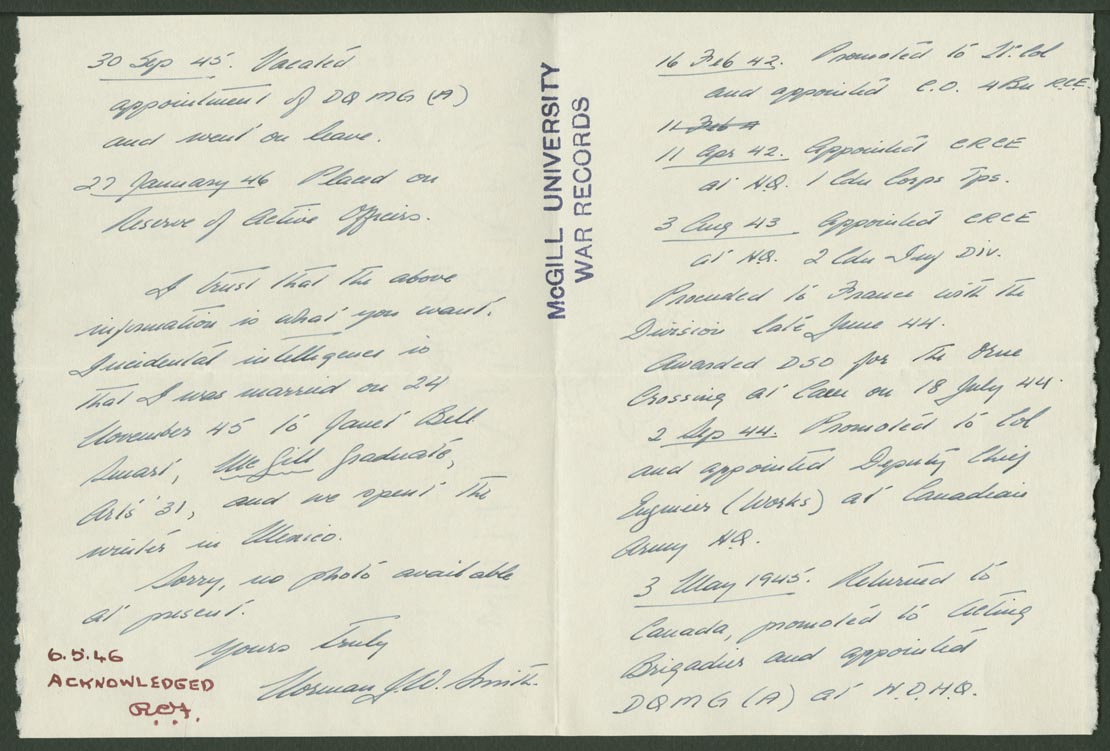 30 Sep 45. Vacated
appointment of DQMG (A)
and went on leave.
27 January 46 Placed on
Reserve of Active Officers.
I trust that the above
information is what you want.
Incidental intelligence is
that I was married on 24
November 45 to Janet Bell
Smart, McGill graduate,
Arts '31, and we spent the
winter in Mexico.
Sorry, no photo available
at present.
Yours truly
Norman J.W. Smith.
6.5.46
ACKNOWLEDGED
McGILL UNIVERSITY
WAR RECORDS
16 Feb 42. Promoted to Lt. Col
and appointed C.O. 4 Bn RCE.
11 Feb 4
11 Apr 42. Appointed CRCE
at H.Q. 1 Cdn Corps Tps.
3 Aug 43 appointed CRCE
at H.Q. 2 Cdn Inf Div.
Proceeded to France with the
Division late June 44.
Awarded DSO for the Orne
Crossing at Caen on 18 July 44.
2 Sep 44. Promoted to Col
and appointed Deputy Chief
Engineer (Works) at Canadian
Army H.Q.
3 May 1945. Returned to
Canada, promoted to Acting
Brigadier and appointed
DQMG (A) at N.D.H.Q.